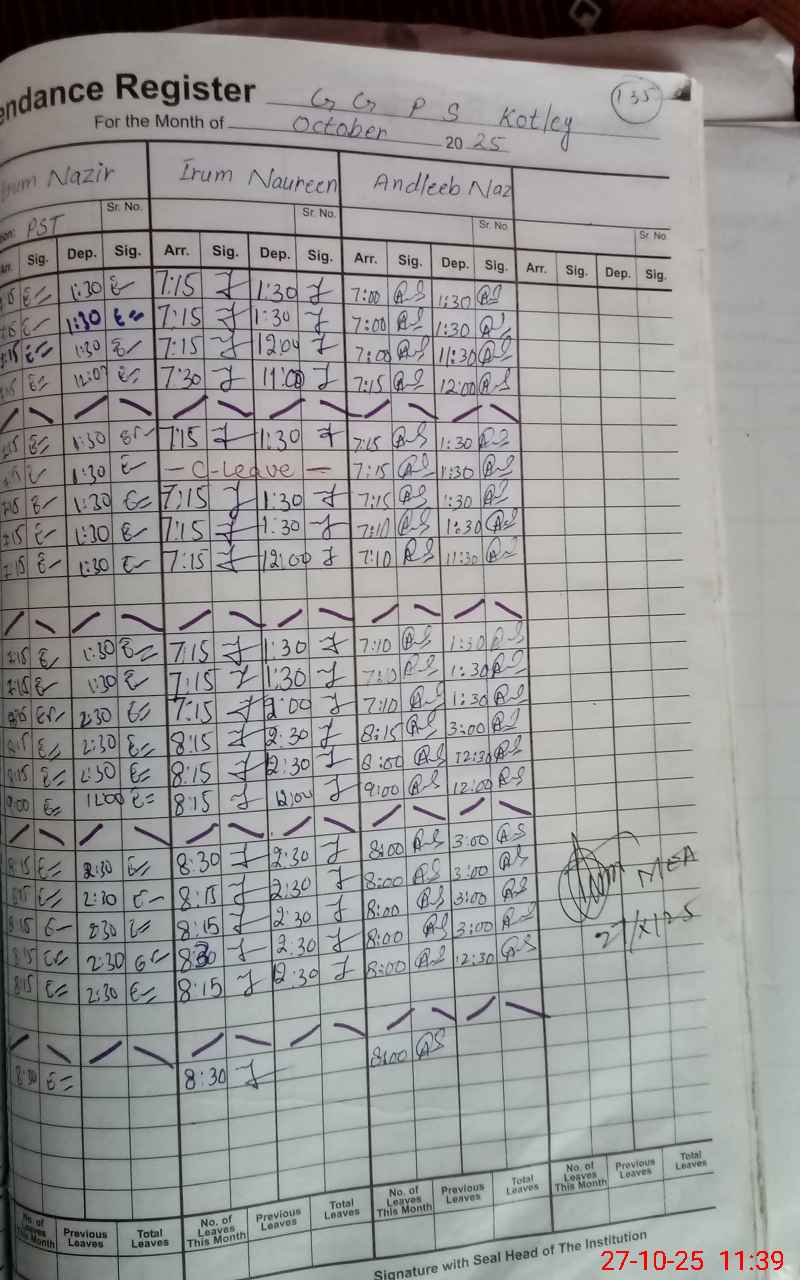 endance Register G G P S Kotley 135
For the Month of October 2025
Nazir Irum Naureen Andleeb Naz
PST Sr. No. Sr. No. Sr. No Sr. No
Arr. Sig. Dep. Sig. Arr. Sig. Dep. Sig. Arr. Sig. Dep. Sig. Arr. Sig. Dep. Sig.
1:30 7:15 1:30 7:00 1:30
1:30 7:15 1:30 7:00 1:30
1:30 7:15 7:00 11:30
7:30 11:00 7:15 12:00
1:30 7:15 1:30 7:15 1:30
1:30 - C-Leave - 7:15 1:30
1:30 7:15 1:30 7:15 1:30
7:15 1:30 7:15 1:30 7:10 1:30
7:15 1:30 7:15 12:00 7:10 11:30
7:15 1:30 7:15 1:30 7:10 1:30
7:15 1:30 7:15 1:30 7:10 1:30
2:30 7:15 2:00 7:10 1:30
8:15 2:30 8:15 2:30 8:15 3:00
8:15 2:30 8:15 2:30 8:00 12:30
9:00 8:15 12:00 9:00 12:00
8:15 2:30 8:30 2:30 8:00 3:00
2:30 8:15 2:30 8:00 3:00 MEA
8:15 2:30 8:15 2:30 8:00 3:00 27/X/25
8:15 2:30 830 2:30 8:00 3:00
8:15 2:30 8:15 2:30 8:00 12:30
8:30 8:30 8:00
No. of Leaves This Month Previous Leaves Total Leaves No. of Leaves This Month Previous Leaves Total Leaves No. of Leaves This Month Previous Leaves Total Leaves No. of Leaves This Month Previous Leaves Total Leaves
Signature with Seal Head of The Institution
27-10-25 11:39